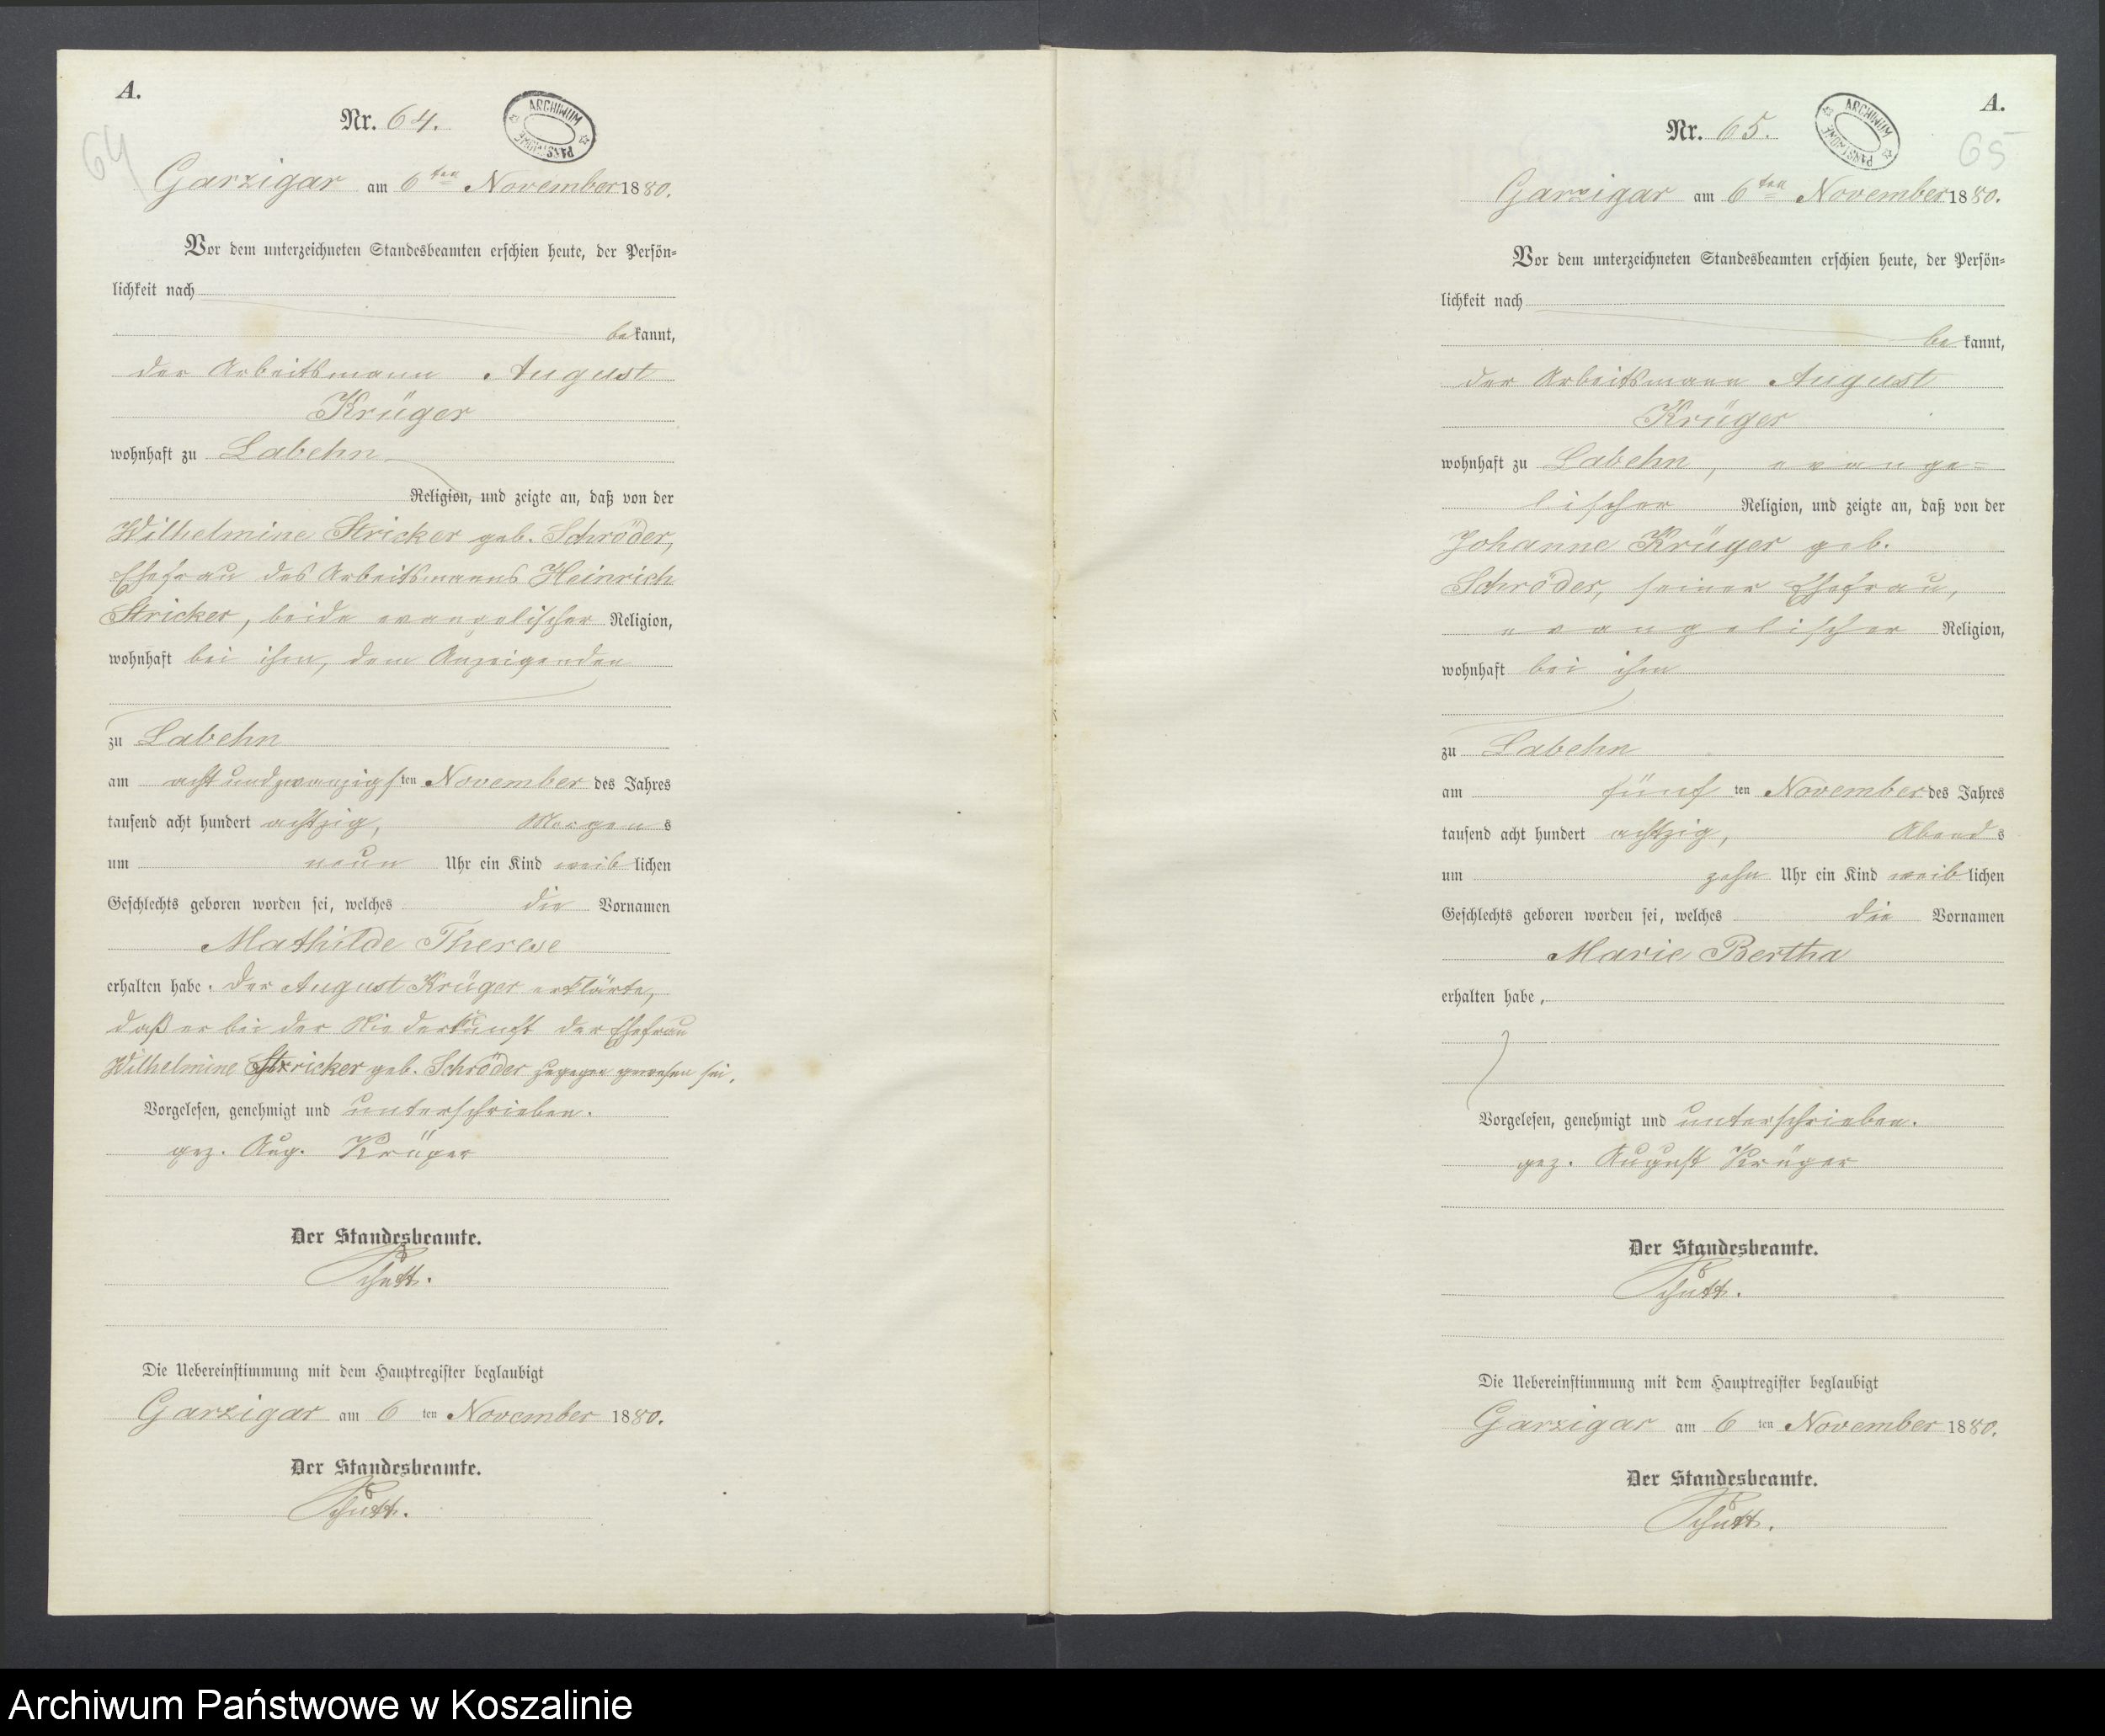 A.
Nr. 64.
ARCHIWUM PAŃSTWOWE
64
Garzigar am 6ten November 1880.
Vor dem unterzeichneten Standesbeamten erschien heute, der Persön-
lichkeit nach
bekannt,
der Arbeitsmann August
Krüger
wohnhaft zu Labehn
Religion, und zeigte an, daß von der
Wilhelmine Stricker geb. Schröder,
Ehefrau des Arbeitsmanns Heinrich
Stricker, beide evangelischer Religion,
wohnhaft bei ihm, dem Anzeigenden
zu Labehn
am acht und zwanzigsten November des Jahres
tausend acht hundert achtzig, Morgens
um neun Uhr ein Kind weiblichen
Geschlechts geboren worden sei, welches die Vornamen
Mathilde Therese
erhalten habe. Der August Krüger erklärte,
daß er bei der Niederkunft der Ehefrau
Wilhelmine Stricker geb. Schröder zugegen gewesen sei.
Vorgelesen, genehmigt und unterschrieben.
gez. Aug. Krüger
Der Standesbeamte.
Schütt.
Die Uebereinstimmung mit dem Hauptregister beglaubigt
Garzigar am 6 ten November 1880.
Der Standesbeamte.
Schütt.
A.
Nr. 65.
ARCHIWUM PAŃSTWOWE
65
Garzigar am 6ten November 1880.
Vor dem unterzeichneten Standesbeamten erschien heute, der Persön-
lichkeit nach
bekannt,
der Arbeitsmann August
Krüger
wohnhaft zu Labehn, evange-
lischer Religion, und zeigte an, daß von der
Johanne Krüger geb.
Schröder, seiner Ehefrau,
evangelischer Religion,
wohnhaft bei ihm
zu Labehn
am fünf ten November des Jahres
tausend acht hundert achtzig, Abends
um zehn Uhr ein Kind weiblichen
Geschlechts geboren worden sei, welches die Vornamen
Marie Bertha
erhalten habe,
Vorgelesen, genehmigt und unterschrieben.
gez. August Krüger
Der Standesbeamte.
Schütt.
Die Uebereinstimmung mit dem Hauptregister beglaubigt
Garzigar am 6 ten November 1880.
Der Standesbeamte.
Schütt.
Archiwum Państwowe w Koszalinie